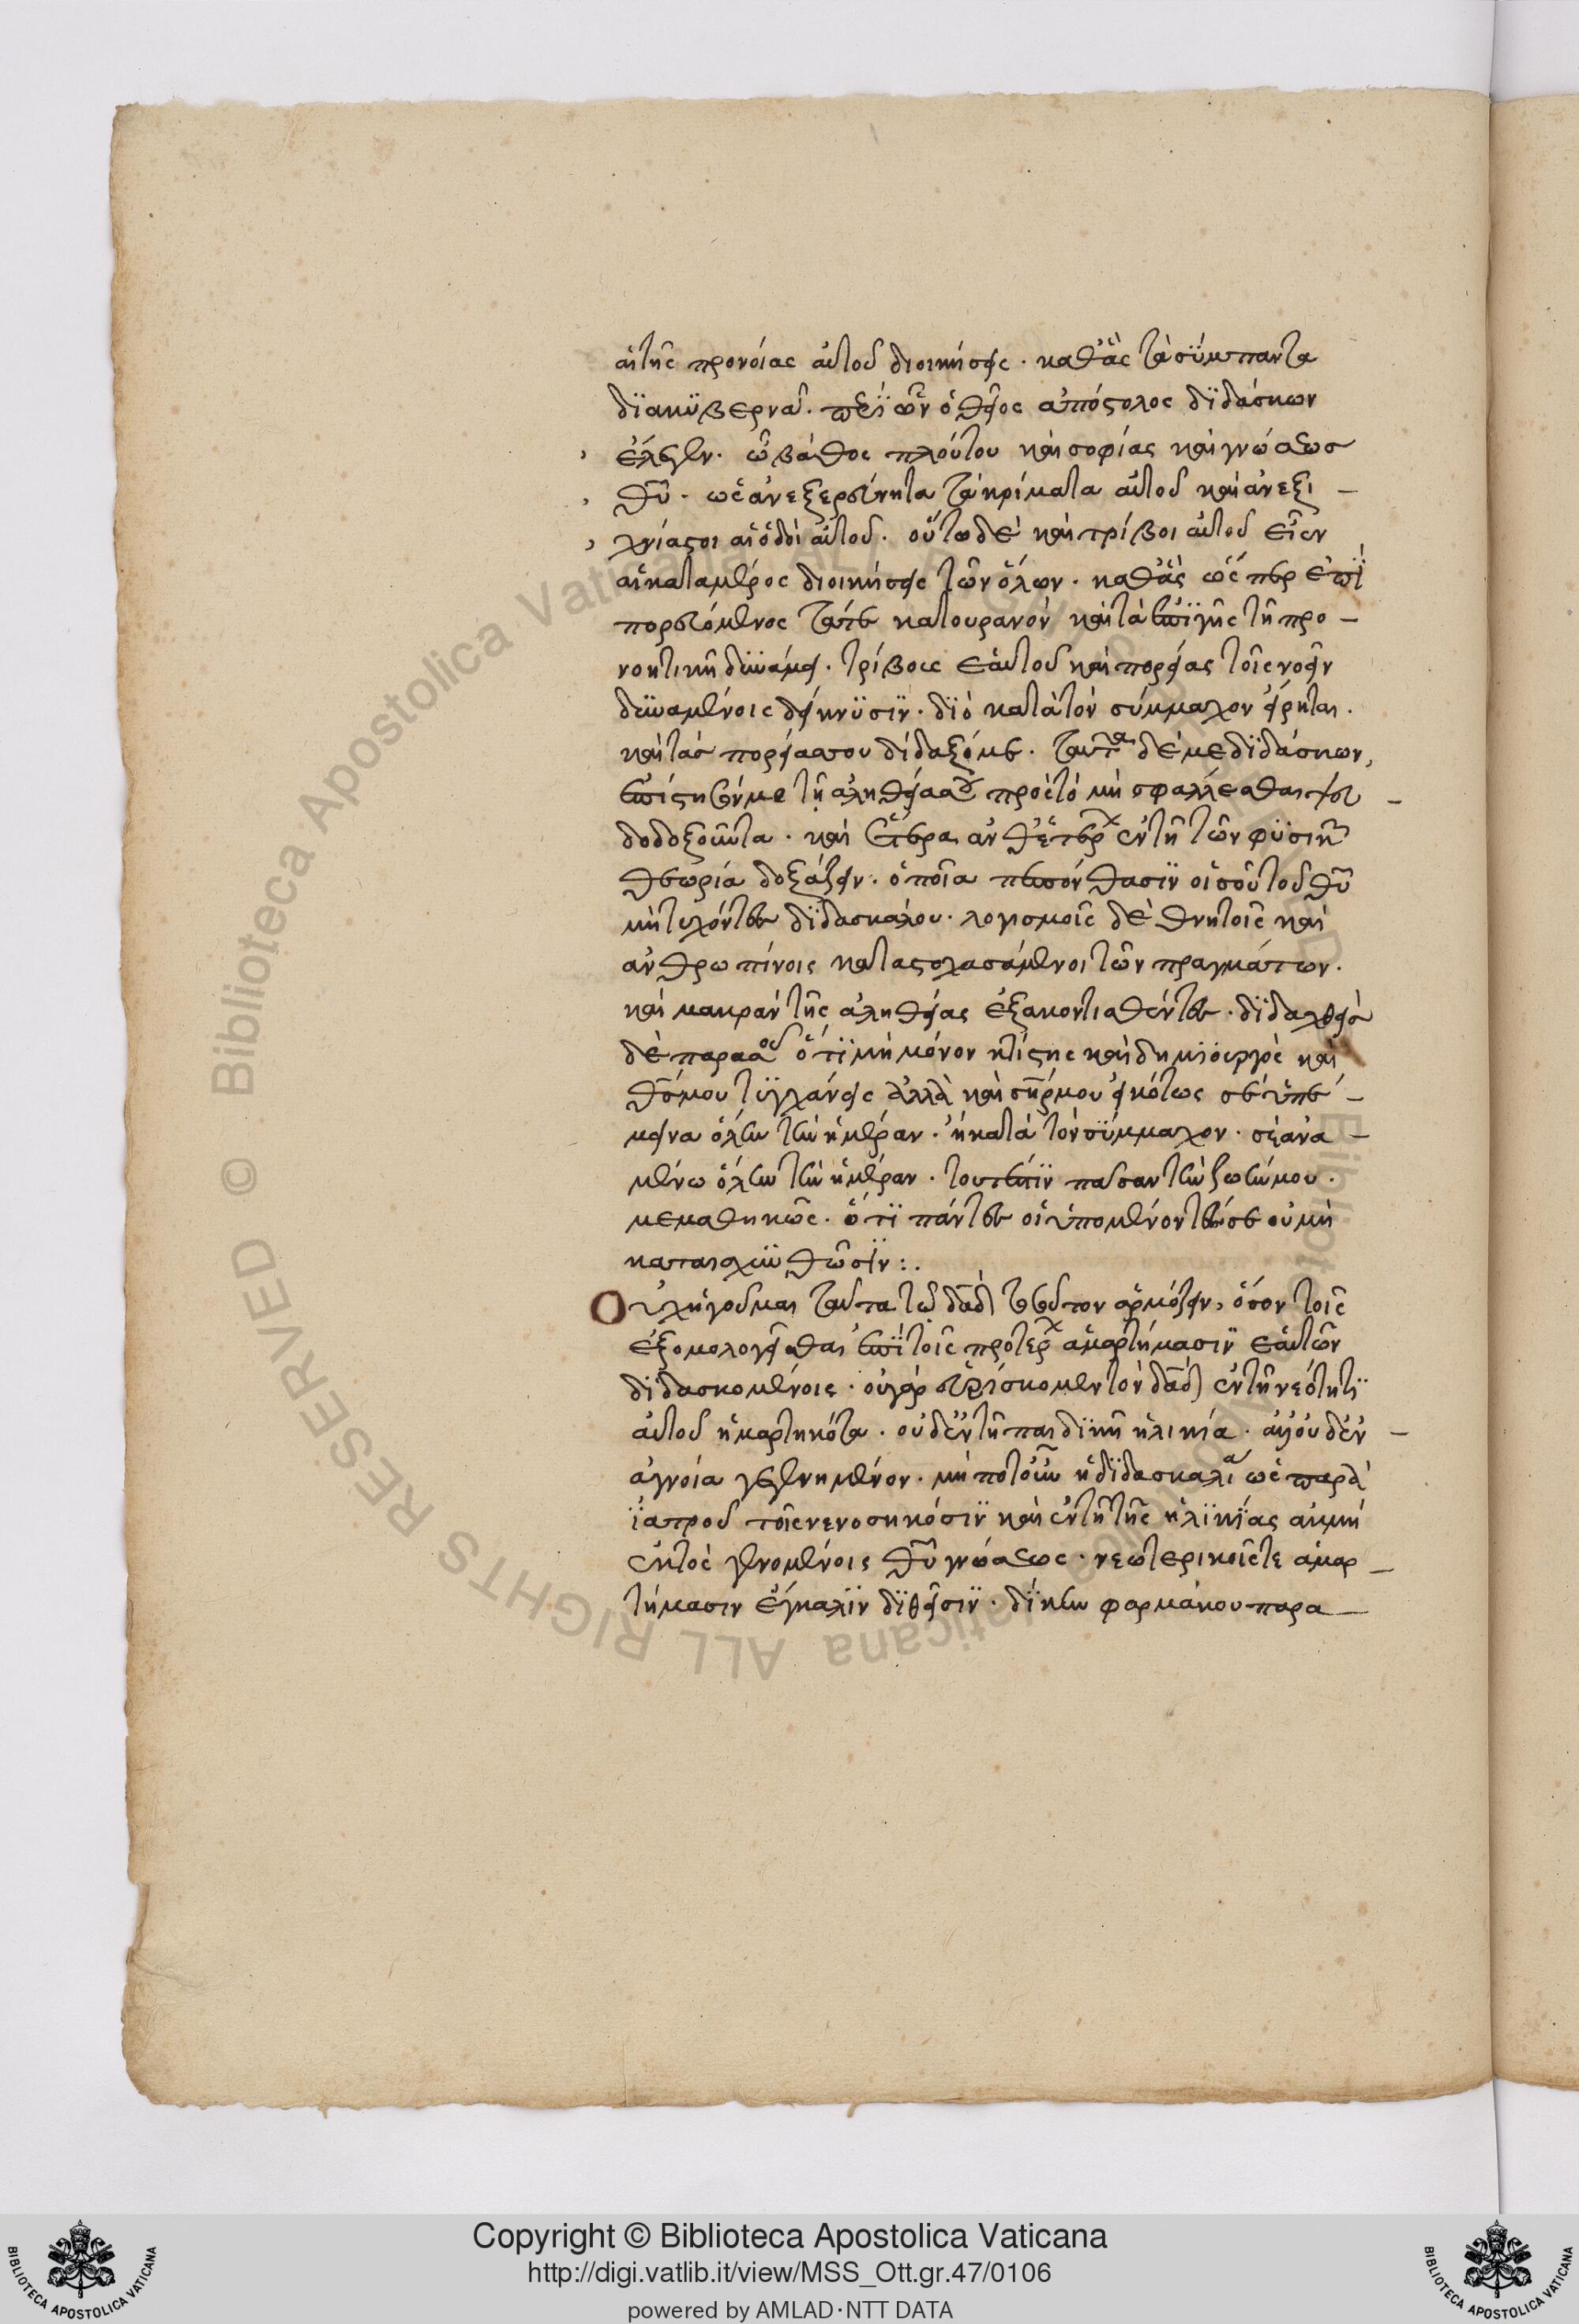 αἱ τῆς προνοίας αὐτοῦ διοικήσεις · καθ' ἃς τὰ σύμπαντα
διακυβερνᾶ · περὶ ὧν ὁ θεῖος ἀπόστολος διδάσκων
ἔλεγεν · ὦ βάθος πλούτου καὶ σοφίας καὶ γνώσεως
θῦ · ὡς ἀνεξερεύνητα τὰ κρίματα αὐτοῦ καὶ ἀνεξι –
χνίαστοι αἱ ὁδοὶ αὐτοῦ · οὕτω δὲ καὶ τρίβοι αὐτοῦ εἶεν
αἱ κατα μέρος διοικήσεις τῶν ὅλων · καθ' ἃς ὥσπερ ἐπι
πορευόμενος τά τε κατ' οὐρανὸν καὶ τὰ ἐπὶ γῆς τῇ προ –
νοητικῇ δυνάμει · τρίβους ἑαυτοῦ καὶ πορείας τοῖς νοεῖν
δυναμένοις δείκνυσιν · διὸ κατὰ τὸν σύμμαχον εἴρηται ·
καὶ τὰς πορείας σου δίδαξόν με · ταῦτα δέ με διδάσκων,
ἐπιστήσόν με τῇ ἀληθείᾳ σου πρὸς τὸ μὴ σφάλλεσθαι ψευ –
δοδοξοῦντα · καὶ ἕτερα ἀνθ' ἑτέρων ἐν τῇ τῶν φύσεων
θεωρίᾳ δοξάζειν · ὁποῖα πεπόνθασιν οἱ σοῦ τοῦ θῦ
μὴ τυχόντες διδασκάλου · λογισμοῖς δὲ θνητοῖς καὶ
ἀνθρωπίνοις καταστοχασάμενοι τῶν πραγμάτων ·
καὶ μακρὰν τῆς ἀληθείας ἐξακοντισθέντες · διδαχθεὶς
δὲ παρὰ σοῦ ὅτι μὴ μόνον κτίστης καὶ δημιουργὸς καὶ
θς μου τυγχάνεις ἀλλὰ καὶ σηρ μου εἰκότως σὲ ὑπέ –
μεινα ὅλην τὴν ἡμέραν · ἢ κατὰ τὸν σύμμαχον · σὲ ἀνα –
μένω ὅλην τὴν ἡμέραν · τουτέστιν πᾶσαν τὴν ζωήν μου ·
μεμαθηκὼς · ὅτι πάντες οἱ ὑπομένοντές σε οὐ μὴ
καταισχυνθῶσιν : .
Οὐχ ἡγοῦμαι ταῦτα τῷ δαδ τοσοῦτον ἁρμόζειν, ὅσον τοῖς
ἐξομολογεῖσθαι ἐπὶ τοῖς προτέροις ἁμαρτήμασιν ἑαυτῶν
διδασκομένοις · οὐ γὰρ εὑρίσκομεν τὸν δαδ ἐν τῇ νεότητι
αὐτοῦ ἡμαρτηκότα · οὐδ' ἐν τῇ παιδικῇ ἡλικίᾳ · ἀλλ' οὐδ' ἐν –
ἀγνοίᾳ γεγενημένον · μή ποτ' οὖν ἡ διδασκαλία ὡς παρὰ
ἰατροῦ τοῖς νενοσηκόσιν καὶ ἐν τῇ τῆς ἡλικίας ἀκμῇ
ἐκτὸς γενομένοις θῦ γνώσεως · νεωτερικοῖς τε ἁμαρ –
τήμασιν ἐγκαλινδηθεῖσιν · δίκην φαρμάκου παρα –
Copyright © Biblioteca Apostolica Vaticana
http://digi.vatlib.it/view/MSS_Ott.gr.47/0106
powered by AMLAD·NTT DATA
BIBLIOTECA APOSTOLICA VATICANA
BIBLIOTECA APOSTOLICA VATICANA